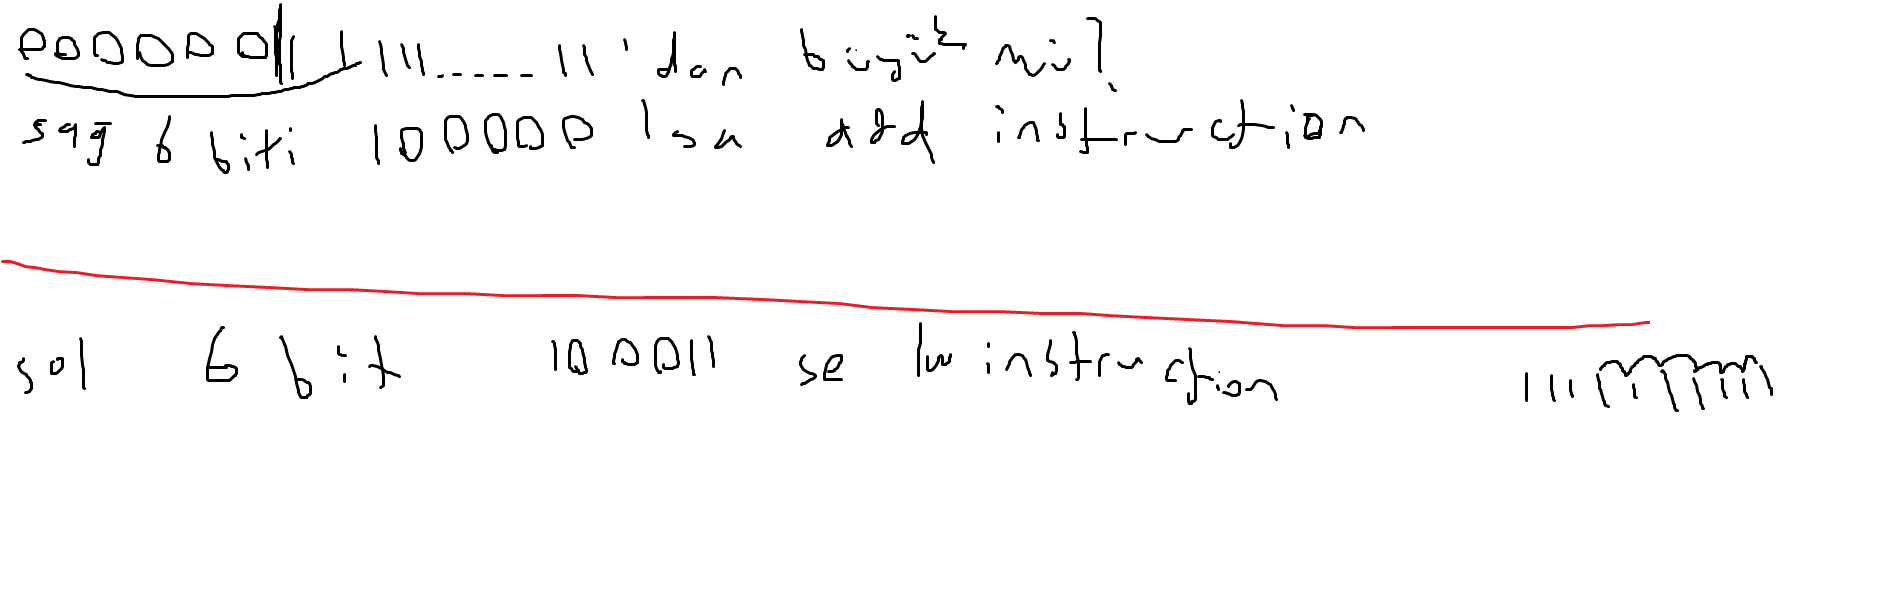 000000||| 1 111.....11 'dan büyük mü?
sağ 6 biti 100000 'sa add instruction
sol 6 bit 100011 se lw instruction 111